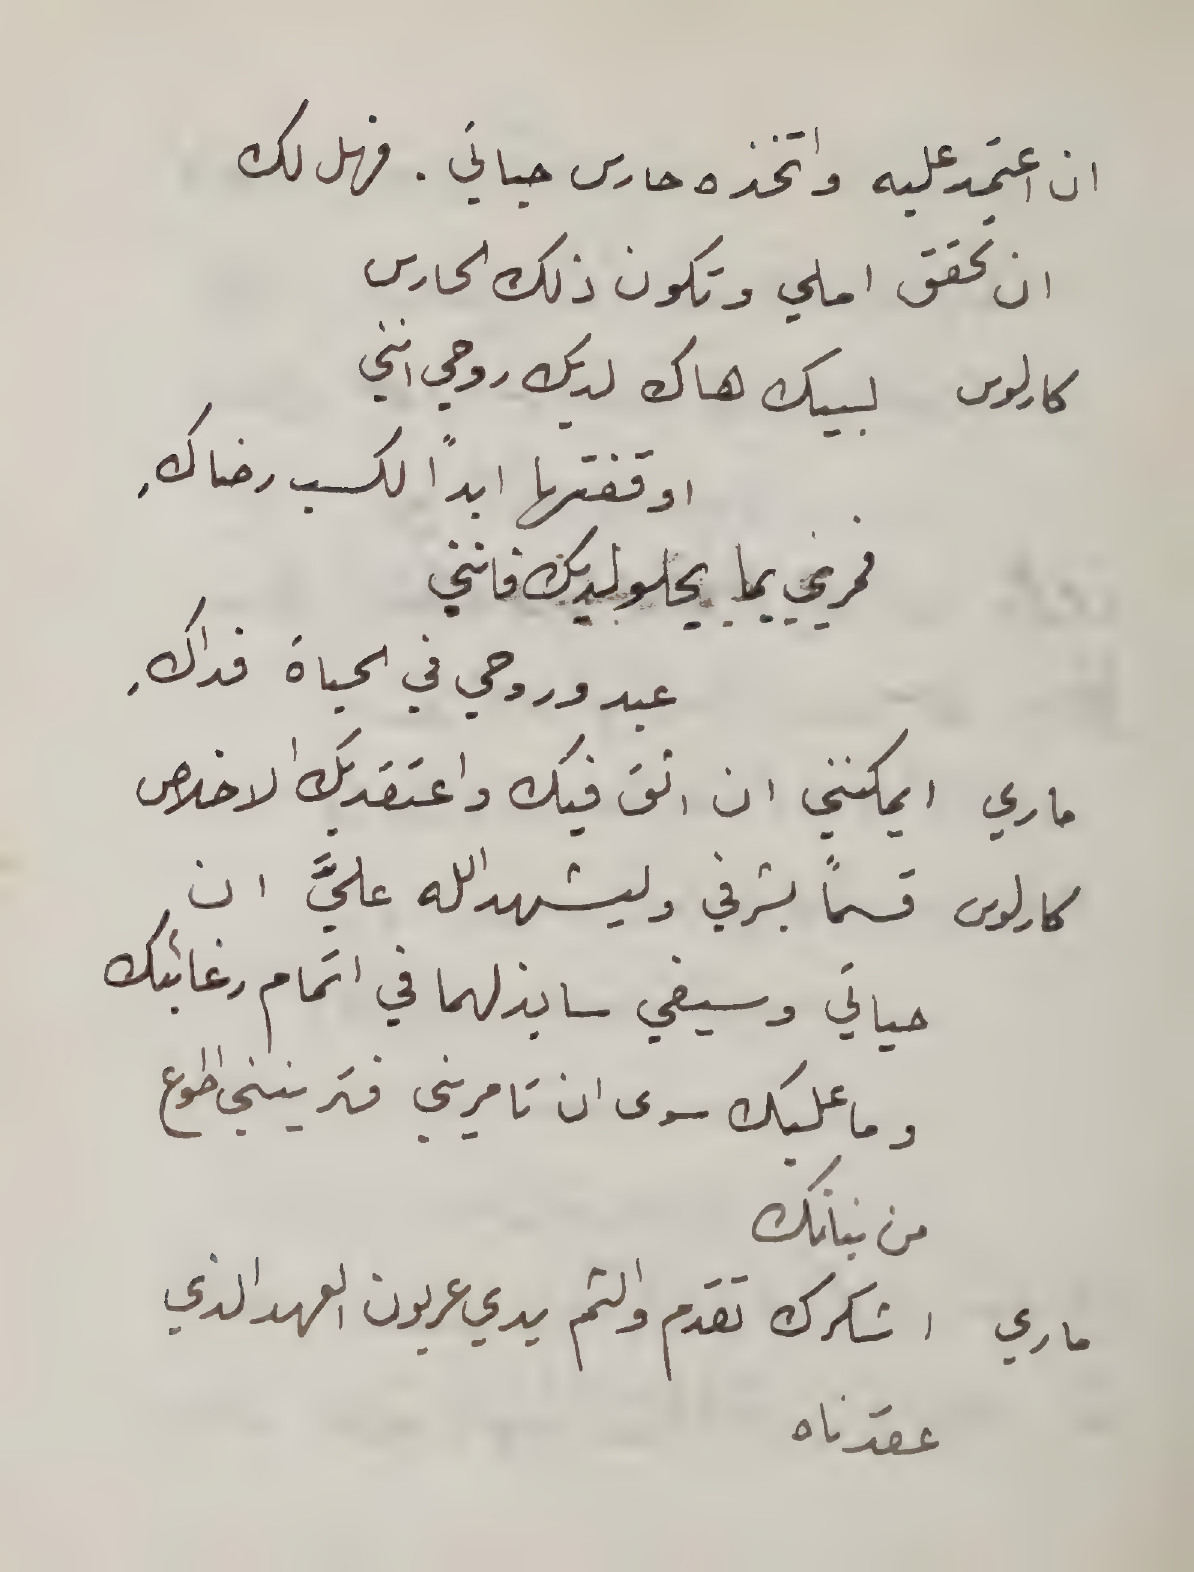 ان اعتمد عليه واتخذه حارس حياتي . فهل لك
ان تحقق املي وتكون ذلك الحارس
كارلوس لبيك هاك لديك روحي انني
اوقفتها ابداً لكسب رضاك
فمريني بما يحلو لديك فانني
عبد وروحي في الحياة فداك
ماري ايمكنني ان اثق فيك واعتقد بك الاخلاص
كارلوس قسماً بشرفي وليشهد الله عليَّ ان
حياتي وسيفي سابذلهما في اتمام رغائبك
وما عليك سوى ان تامريني فترينني اطوع
من بنانك
ماري اشكرك تقدم والثم يدي عربون العهد الذي
عقدناه